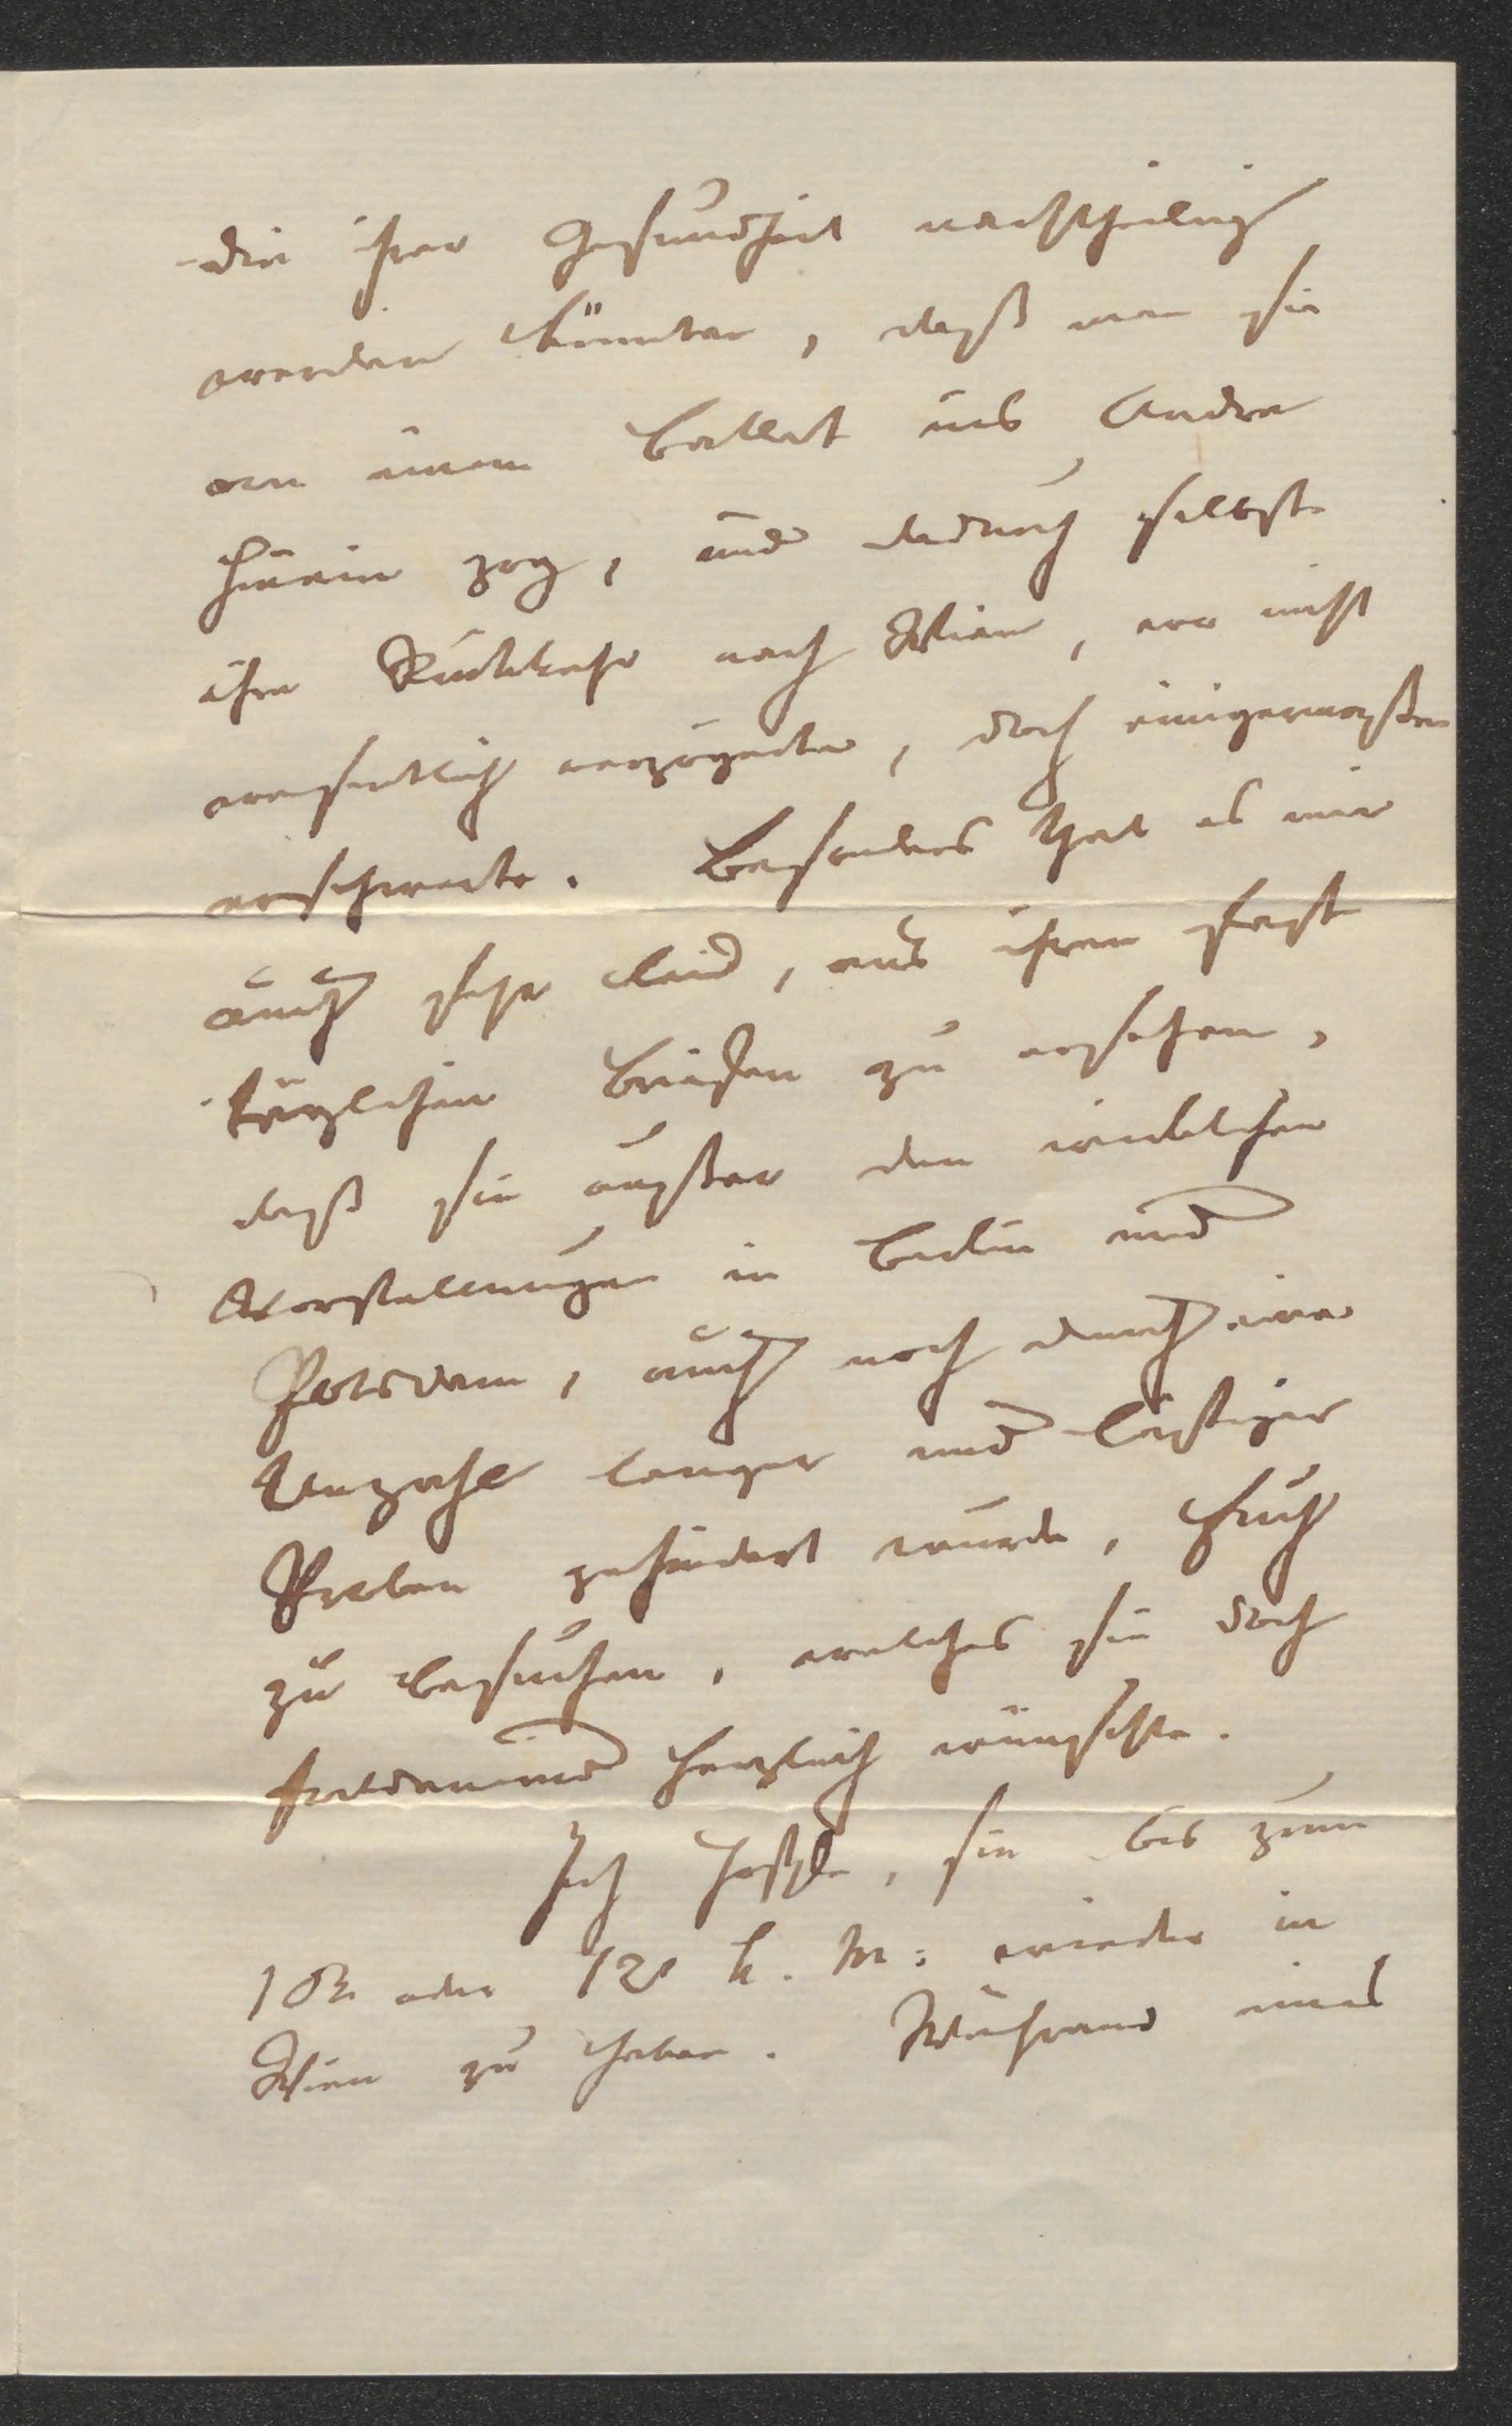 die ihrer Gesundheit nachtheilig
werden könnten, daß man sie
von einem Ballet ins Andre
hinein zog, und dadurch selbst
ihre Rückkehr nach Wien, wo nicht
wesentlich verzögerte, doch einigermaßen
erschwerte. Besonders that es mir
auch sehr leid, aus ihren fast
täglichen Briefen zu ersehen,
daß sie außer den wirklichen
Vorstellungen in Berlin und
Potsdam, auch noch durch eine
Unzahl langer und lästiger
Proben gehindert wurde, Euch
zu besuchen, welches sie doch
herzlich wünschte.
Ich hoffe, sie bis zum
10n oder 12n k. M: wieder in
Wien zu haben. Während eines